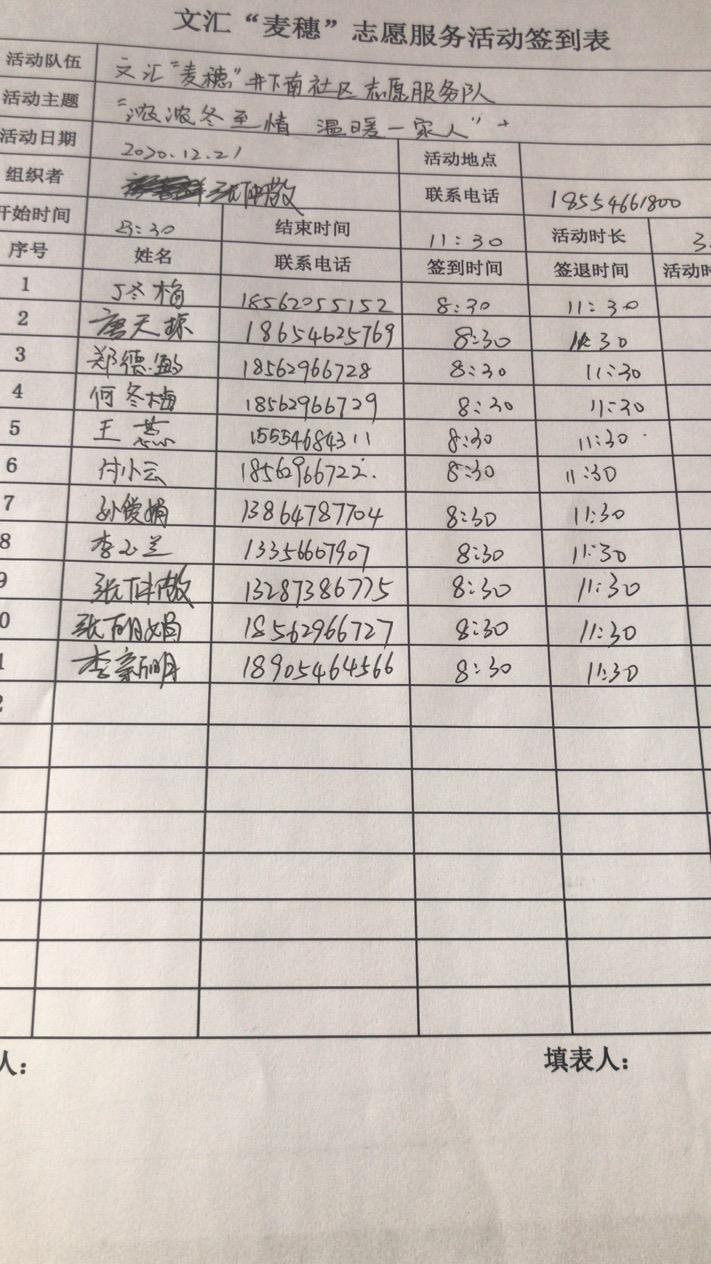 文汇“麦穗”志愿服务活动签到表
活动队伍 文汇“麦穗”井下南社区志愿服务队
活动主题 “浓浓冬至情 温暖一家人”
活动日期 2020.12.21 活动地点
组织者 联系电话 18554661800
开始时间 8:30 结束时间 11:30 活动时长 3.
序号 姓名 联系电话 签到时间 签退时间 活动时
1 丁冬梅 18562055152 8:30 11:30
2 唐天 18654625769 8:30 11:30
3 郑德 18562966728 8:30 11:30
4 何冬梅 18562966729 8:30 11:30
5 王 15554684311 8:30 11:30
6 付小云 18562966722. 8:30 11:30
7 孙俊娟 13864787704 8:30 11:30
8 李玉兰 13356667907 8:30 11:30
9 张 13287386775 8:30 11:30
0 张明娟 18562966727 8:30 11:30
1 李新明 18905464566 8:30 11:30
2
人： 填表人：